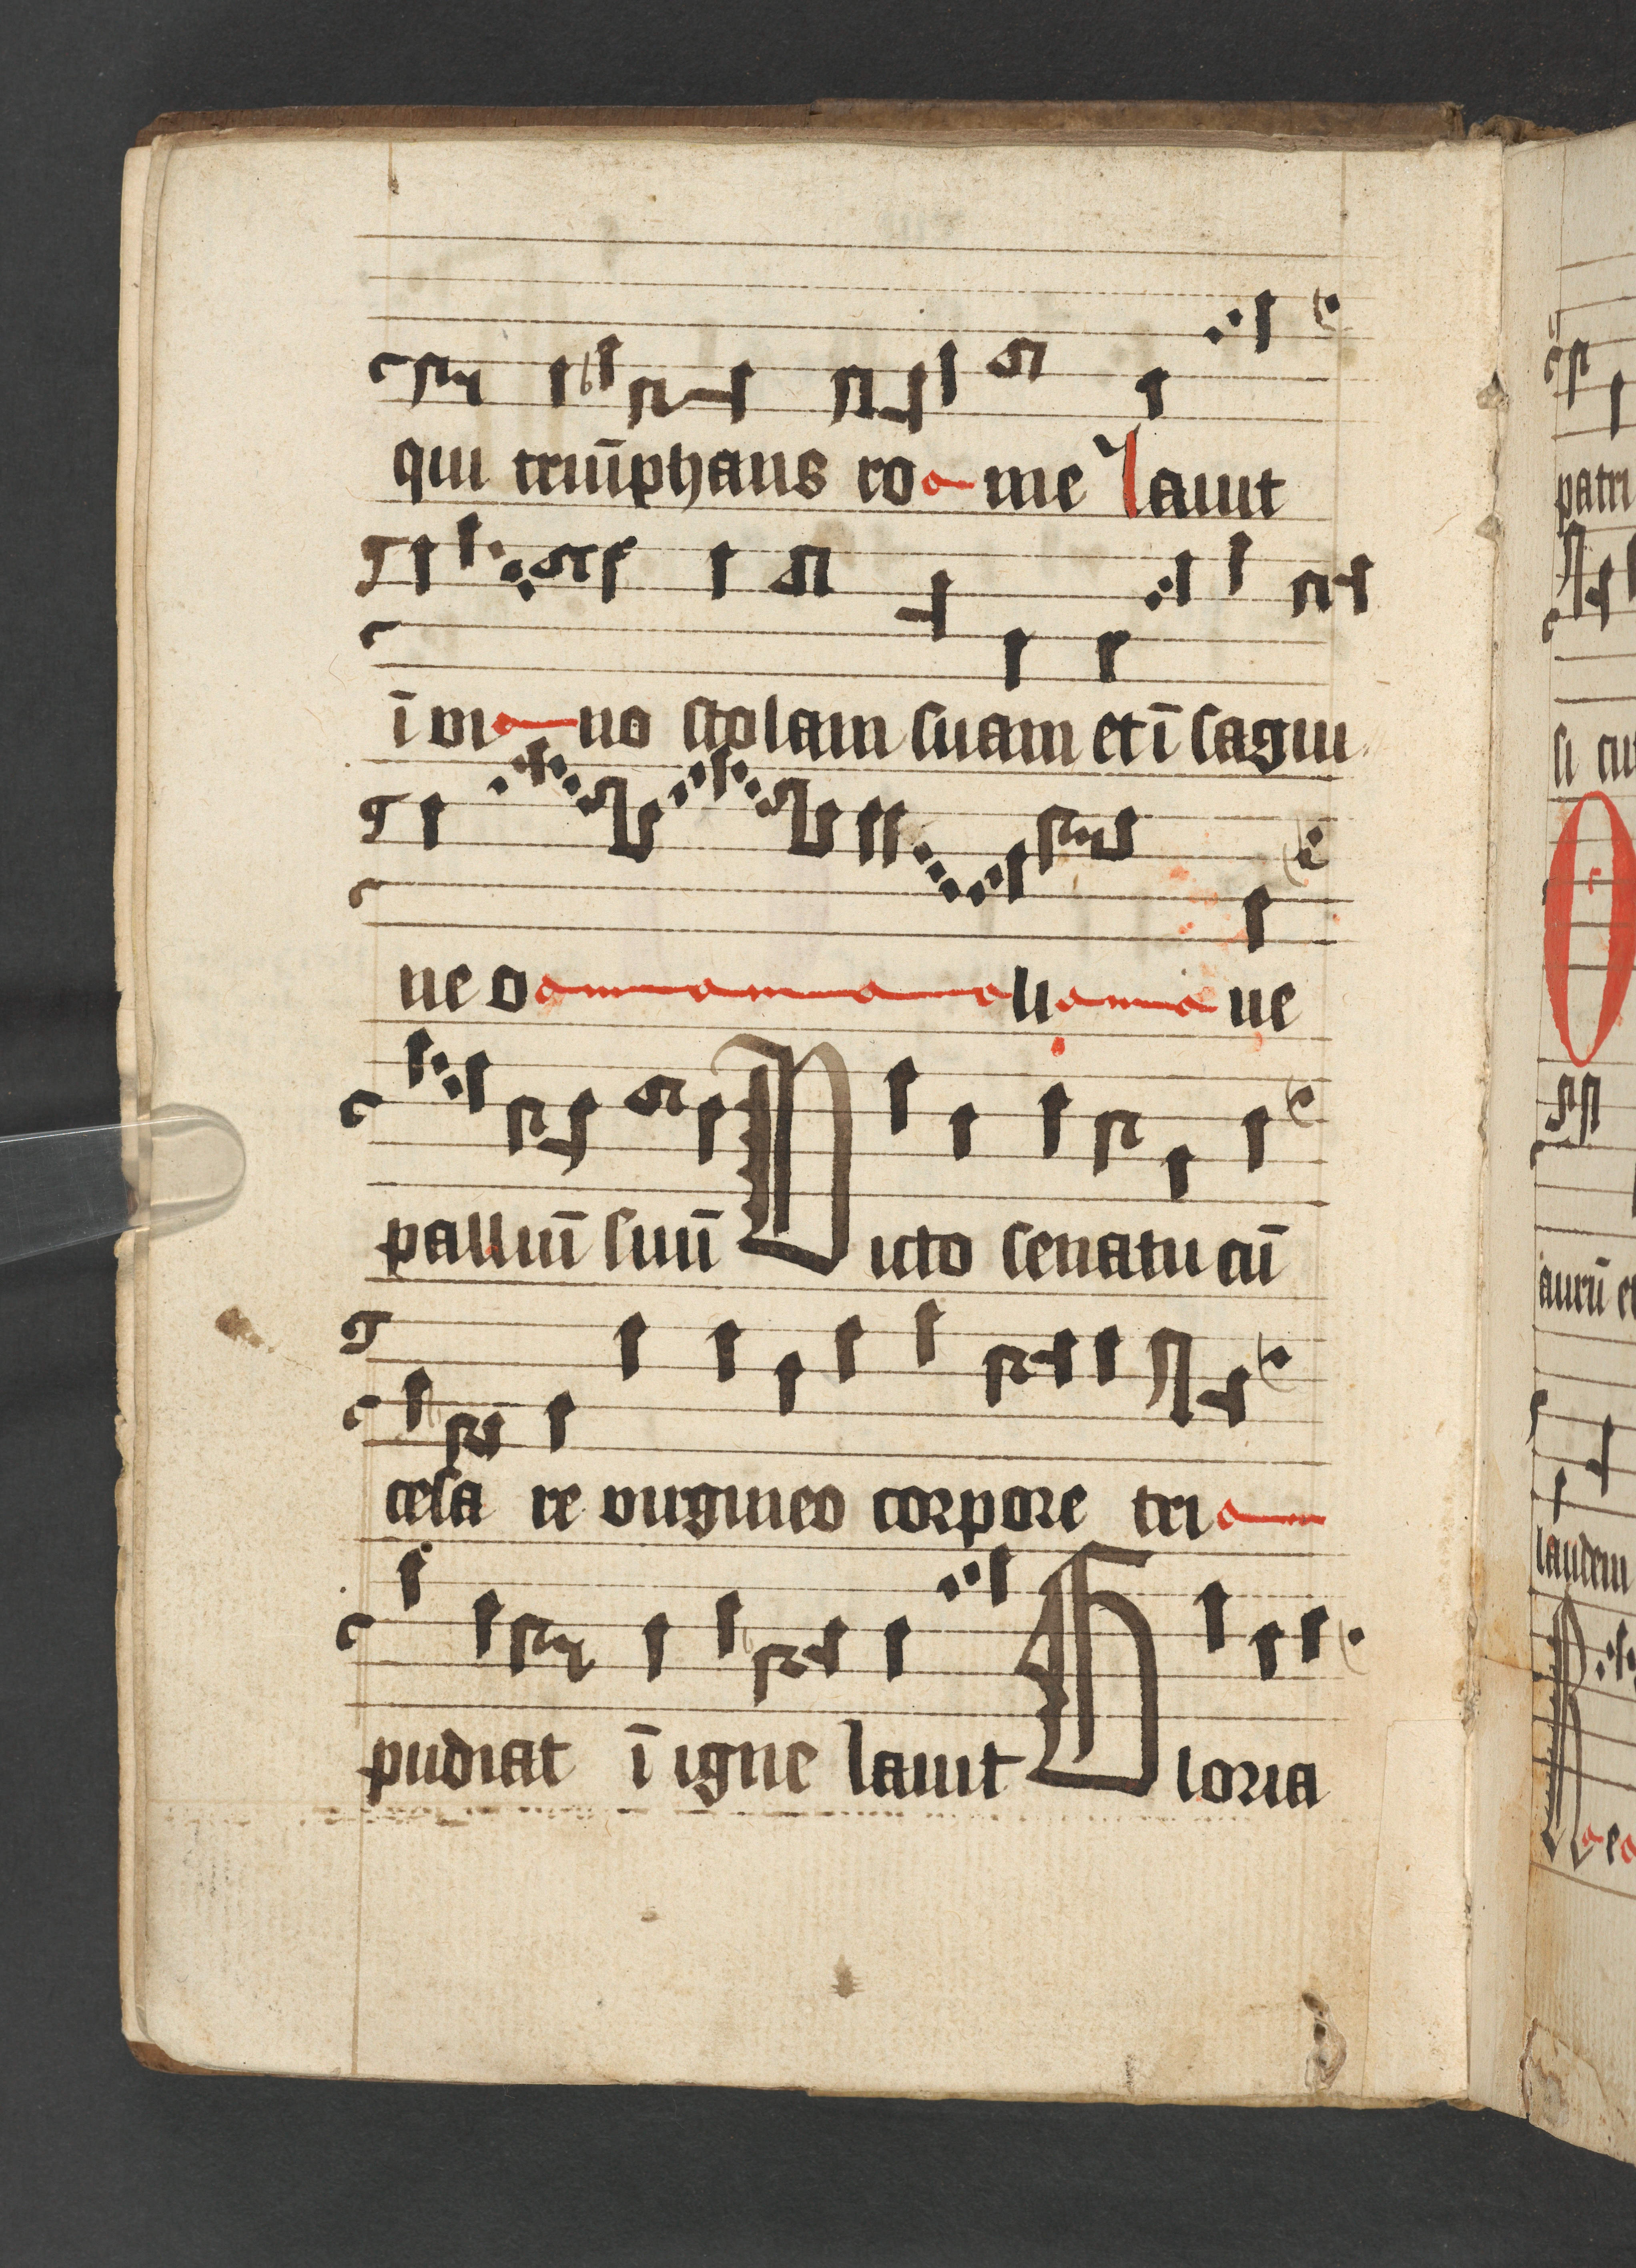 qui triūphans rome lauit
ī vino stolam suam et ī sagui
ne oliue
palliū suū Victo senatu cū
cesa re virgineo corpore tri
pudiat ī igne lauit Gloria
patri
aurū et
laudem